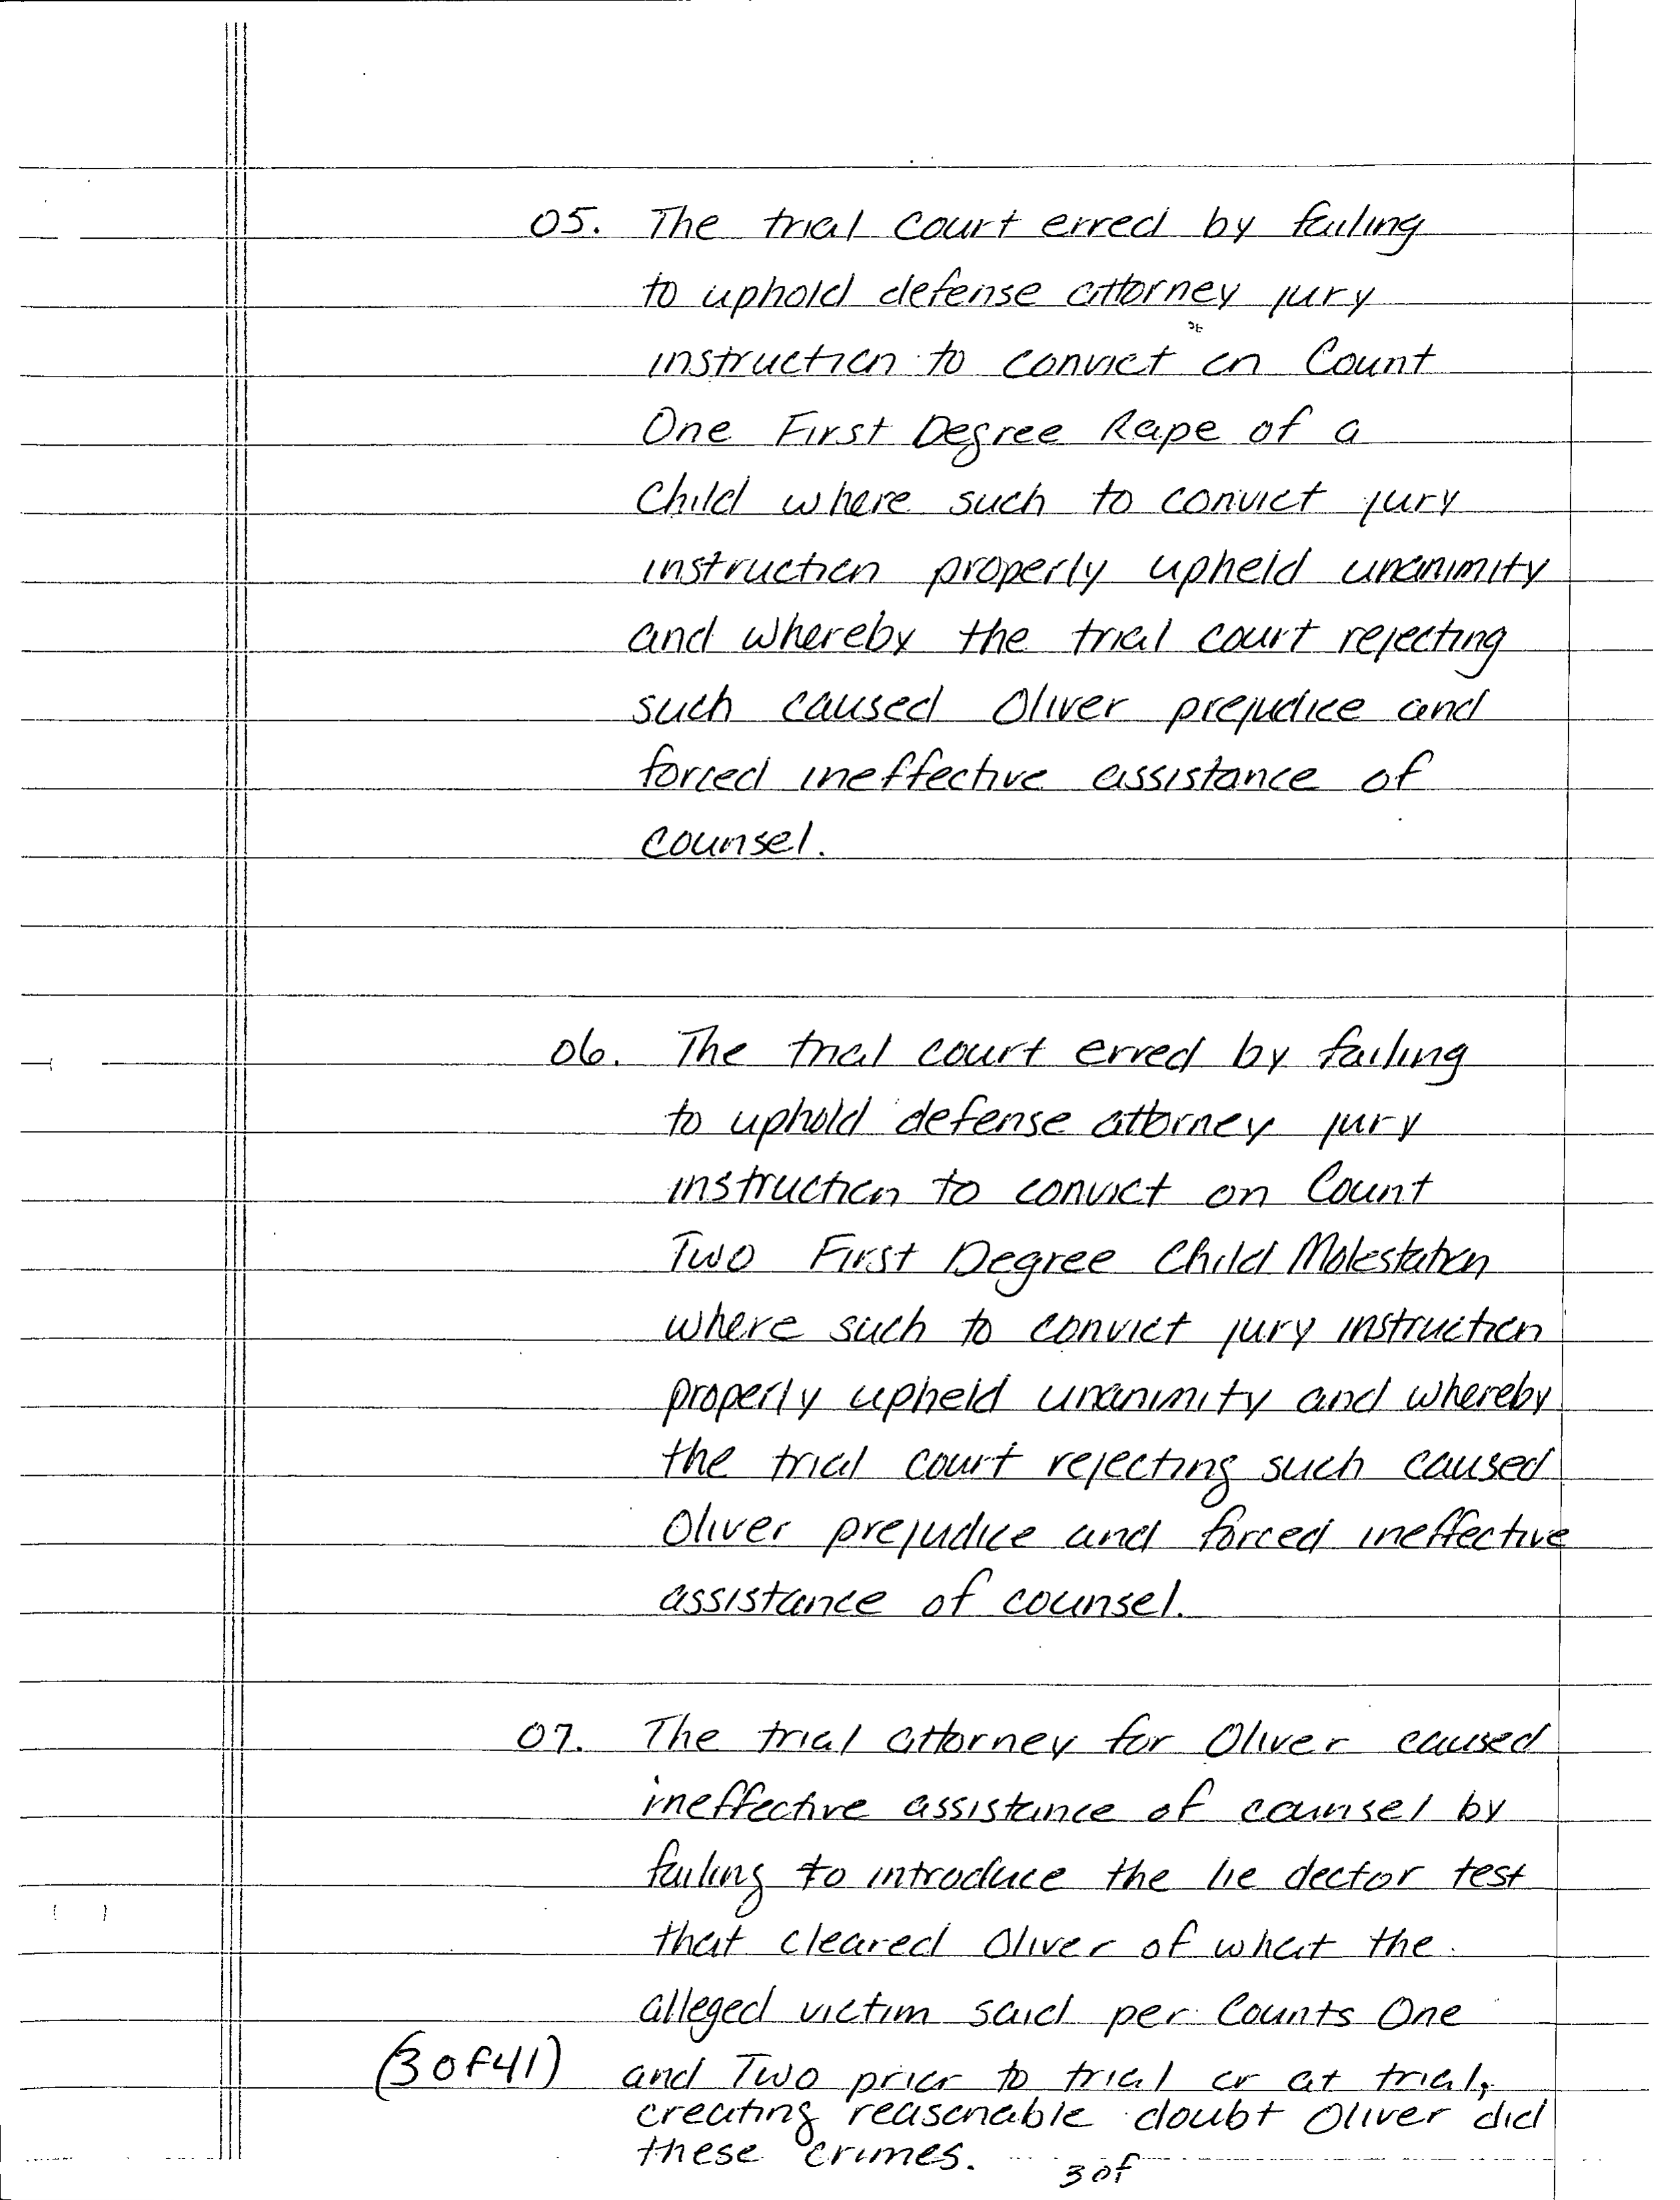 05. The trial court erred by failing
to uphold defense attorney jury
instruction to convict on Count
One First Degree Rape of a
Child where such to convict jury
instruction properly upheld unanimity
and whereby the trial court rejecting
such caused Oliver prejudice and
forced ineffective assistance of
counsel.
06. The trial court erred by failing
to uphold defense attorney jury
instruction to convict on Count
Two First Degree Child Molestation
where such to convict jury instruction
properly upheld unanimity and whereby
the trial court rejecting such caused
Oliver prejudice and forced ineffective
assistance of counsel.
07. The trial attorney for Oliver caused
ineffective assistance of counsel by
failing to introduce the lie dector test
that cleared Oliver of what the
alleged victim said per Counts One
(3 of 41) and Two prior to trial or at trial,
creating reasonable doubt Oliver did
these crimes.
3 of